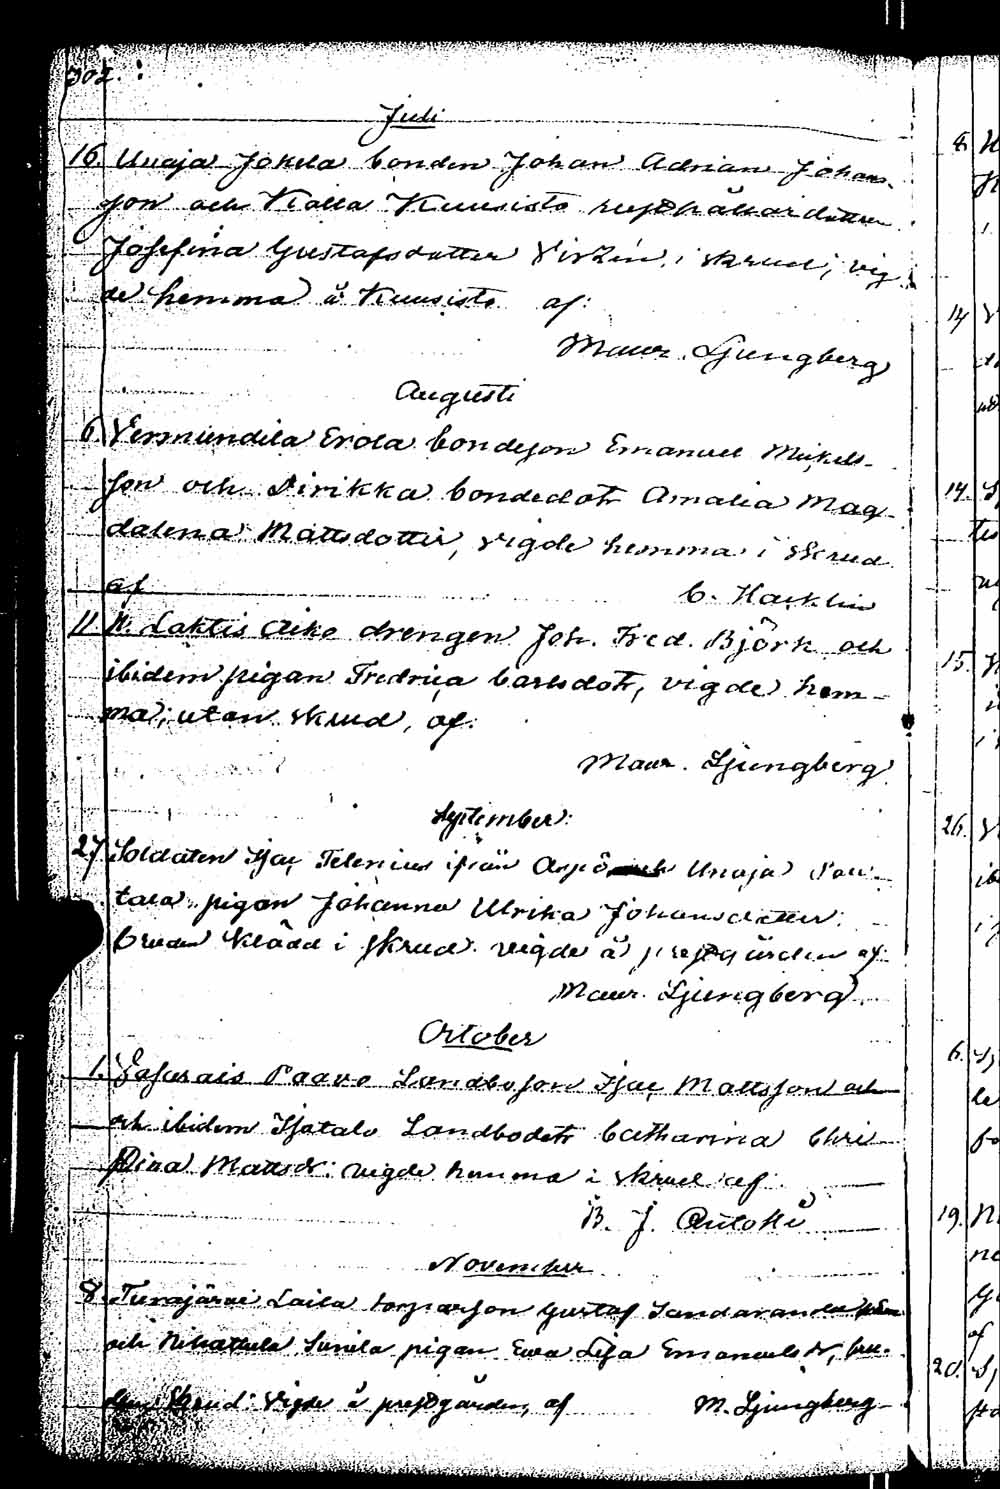 302.
Juli
16. Unaja Jokela bonden Johan Adrian Johans-
son och Kolla Kuusisto rusthållardottren
Josefina Gustafsdotter Virzén, i skrud, vig-
de hemma å Kuusisto af:
Maur. Ljungberg
Augusti
6. Vermundila Erola bondeson Emanuel Mickels-
son och Pirikka bondedotr Amalia Mag-
dalena Mattsdotter, vigde hemma i skrud
af
C. Hacklin
11. N. Laktis Aiko drengen Joh. Fred. Björk och
ibidem pigan Fredrica Carlsdotr, vigde hem-
ma, utan skrud, af:
Maur. Ljungberg
September
27. Soldaten Isac Telenius ifrån Aspö och Unaja
pigan Johanna Ulrika Johansdotter
bruden klädd i skrud vigde å prestgården af
Maur. Ljungberg
October
1. Paavo Landboson Isac Mattsson och
och ibidem Isotalo Landbodotr Catharina Chri
stina Mattsdr: vigde hemma i skrud af
B. J.
November
8. Laila Gustaf
och Sunila pigan Ewa Lisa Emanuelsdr, bru-
den skrud: Vigde å prestgården, af M. Ljungberg
8.
14
14.
15.
26.
6.
19.
20.